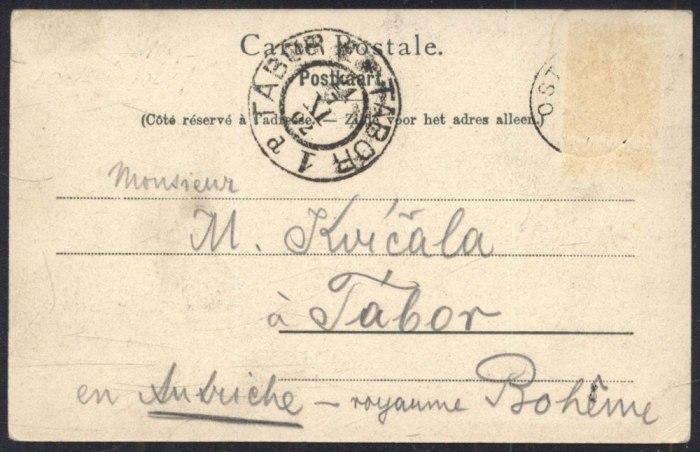 Carte Postale.
Postkaart
(Côté réservé à l'adresse. — Zijde voor het adres alleen.)
TABOR * TABOR 1 a
OST
Monsieur
M. Kvíčala
à Tábor
en Autriche — royaume Bohême